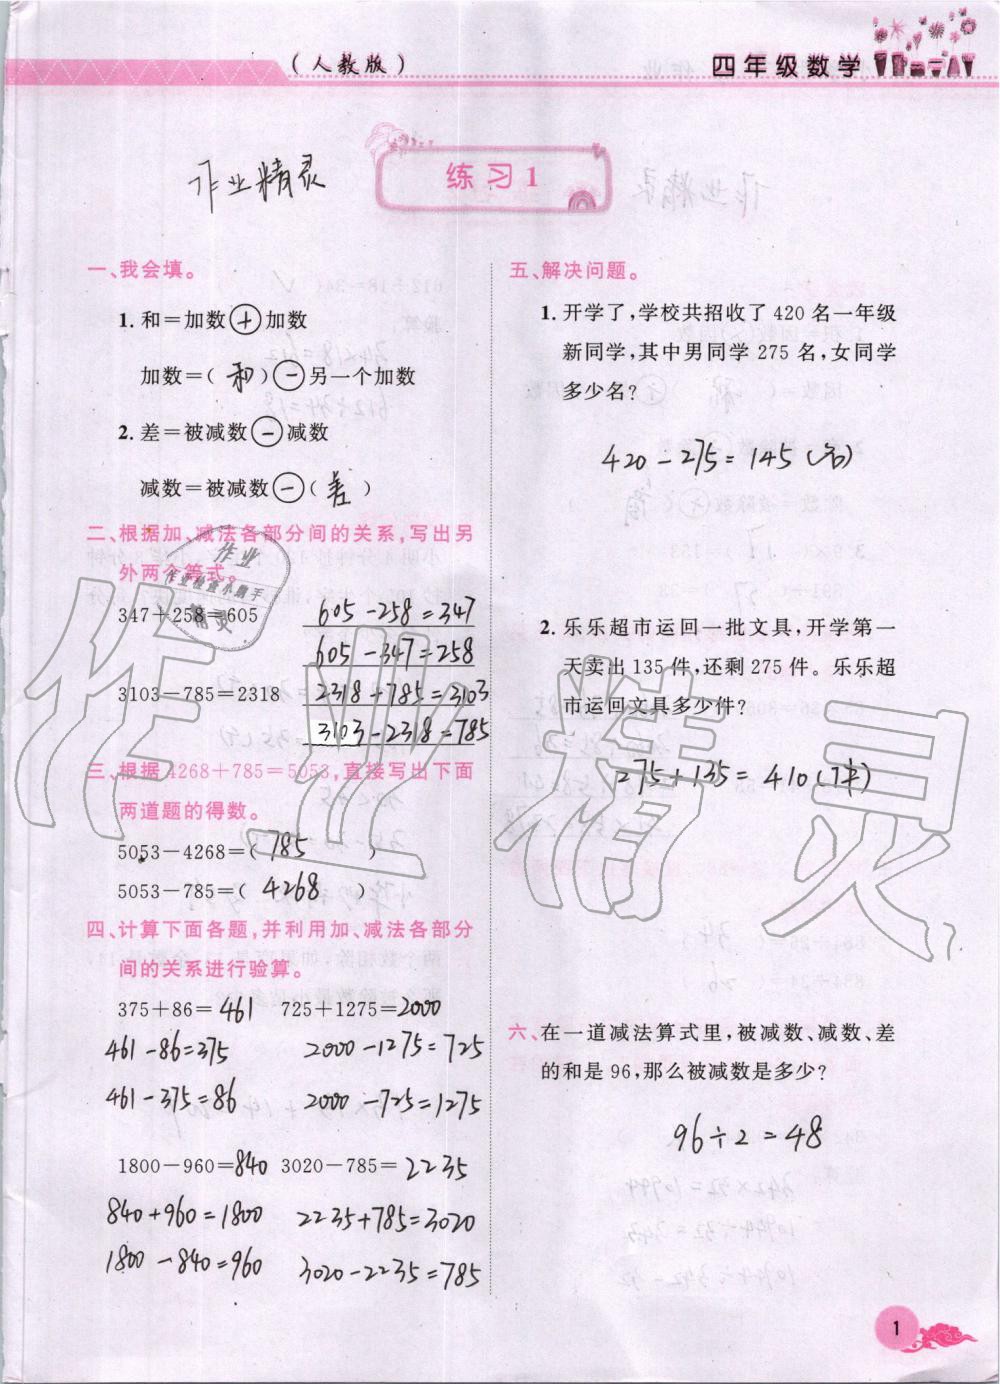 （人教版）
四年级数学
作业精灵
练习1
一、我会填。
1. 和＝加数＋加数
加数＝（和）－另一个加数
2. 差＝被减数－减数
减数＝被减数－（差）
二、根据加、减法各部分间的关系,写出另
外两个等式。
347＋258＝605 605－258＝347
605－347＝258
3103－785＝2318 2318＋785＝3103
3103－2318＝785
三、根据4268＋785＝5053,直接写出下面
两道题的得数。
5053－4268＝（785）
5053－785＝（4268）
四、计算下面各题,并利用加、减法各部分
间的关系进行验算。
375＋86＝461 725＋1275＝2000
461－86＝375 2000－1275＝725
461－375＝86 2000－725＝1275
1800－960＝840 3020－785＝2235
840＋960＝1800 2235＋785＝3020
1800－840＝960 3020－2235＝785
五、解决问题。
1. 开学了,学校共招收了420名一年级
新同学,其中男同学275名,女同学
多少名?
420－275＝145（名）
2. 乐乐超市运回一批文具,开学第一
天卖出135件,还剩275件。乐乐超
市运回文具多少件?
275＋135＝410（件）
六、在一道减法算式里,被减数、减数、差
的和是96,那么被减数是多少?
96÷2＝48
作业
作业检查小助手
精灵
作业精灵
1